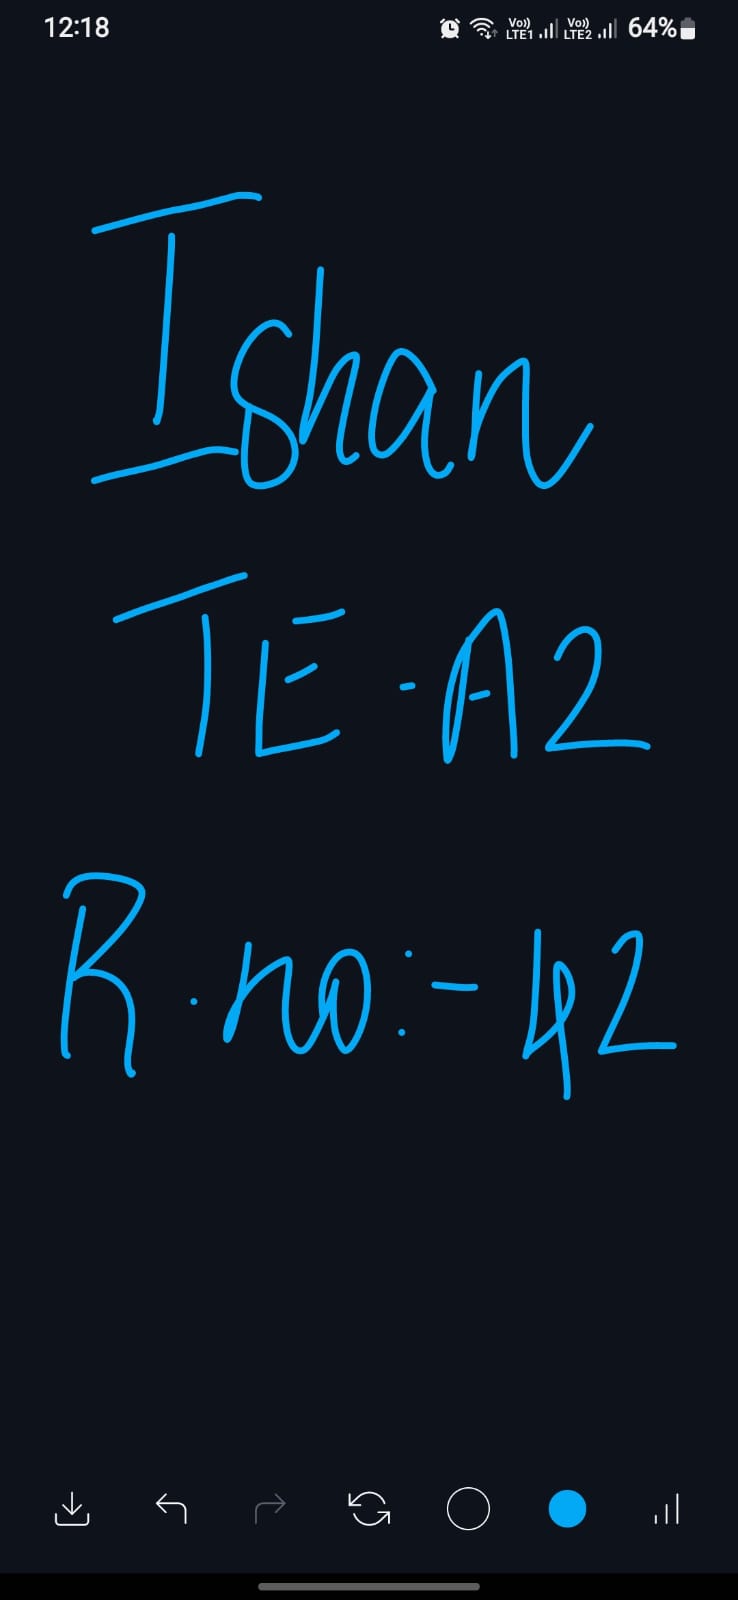 12:18 Vo)) LTE1 Vo)) LTE2 64%
Ishan
TE-A2
R.no:-42